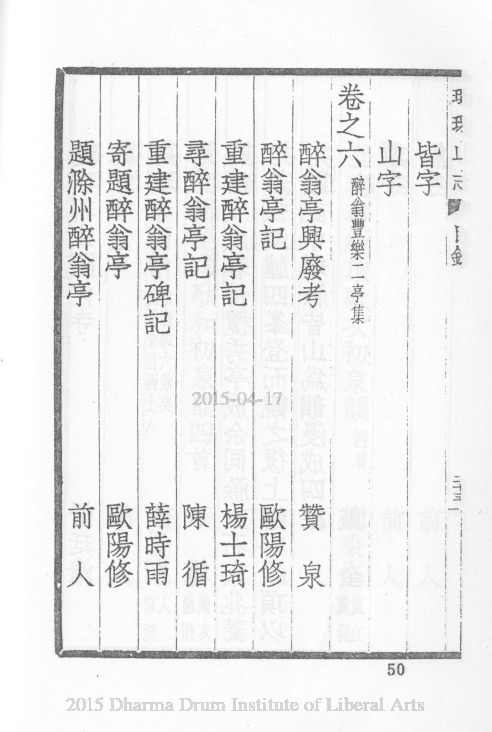 皆字
山字
卷之六 醉翁豐樂二亭集
醉翁亭興廢考 贊泉
醉翁亭記 歐陽修
重建醉翁亭記 楊士琦
尋醉翁亭記 陳循
重建醉翁亭碑記 薛時雨
寄題醉翁亭 歐陽修
題滁州醉翁亭 前人
50
2015-04-17
2015 Dharma Drum Institute of Liberal Arts